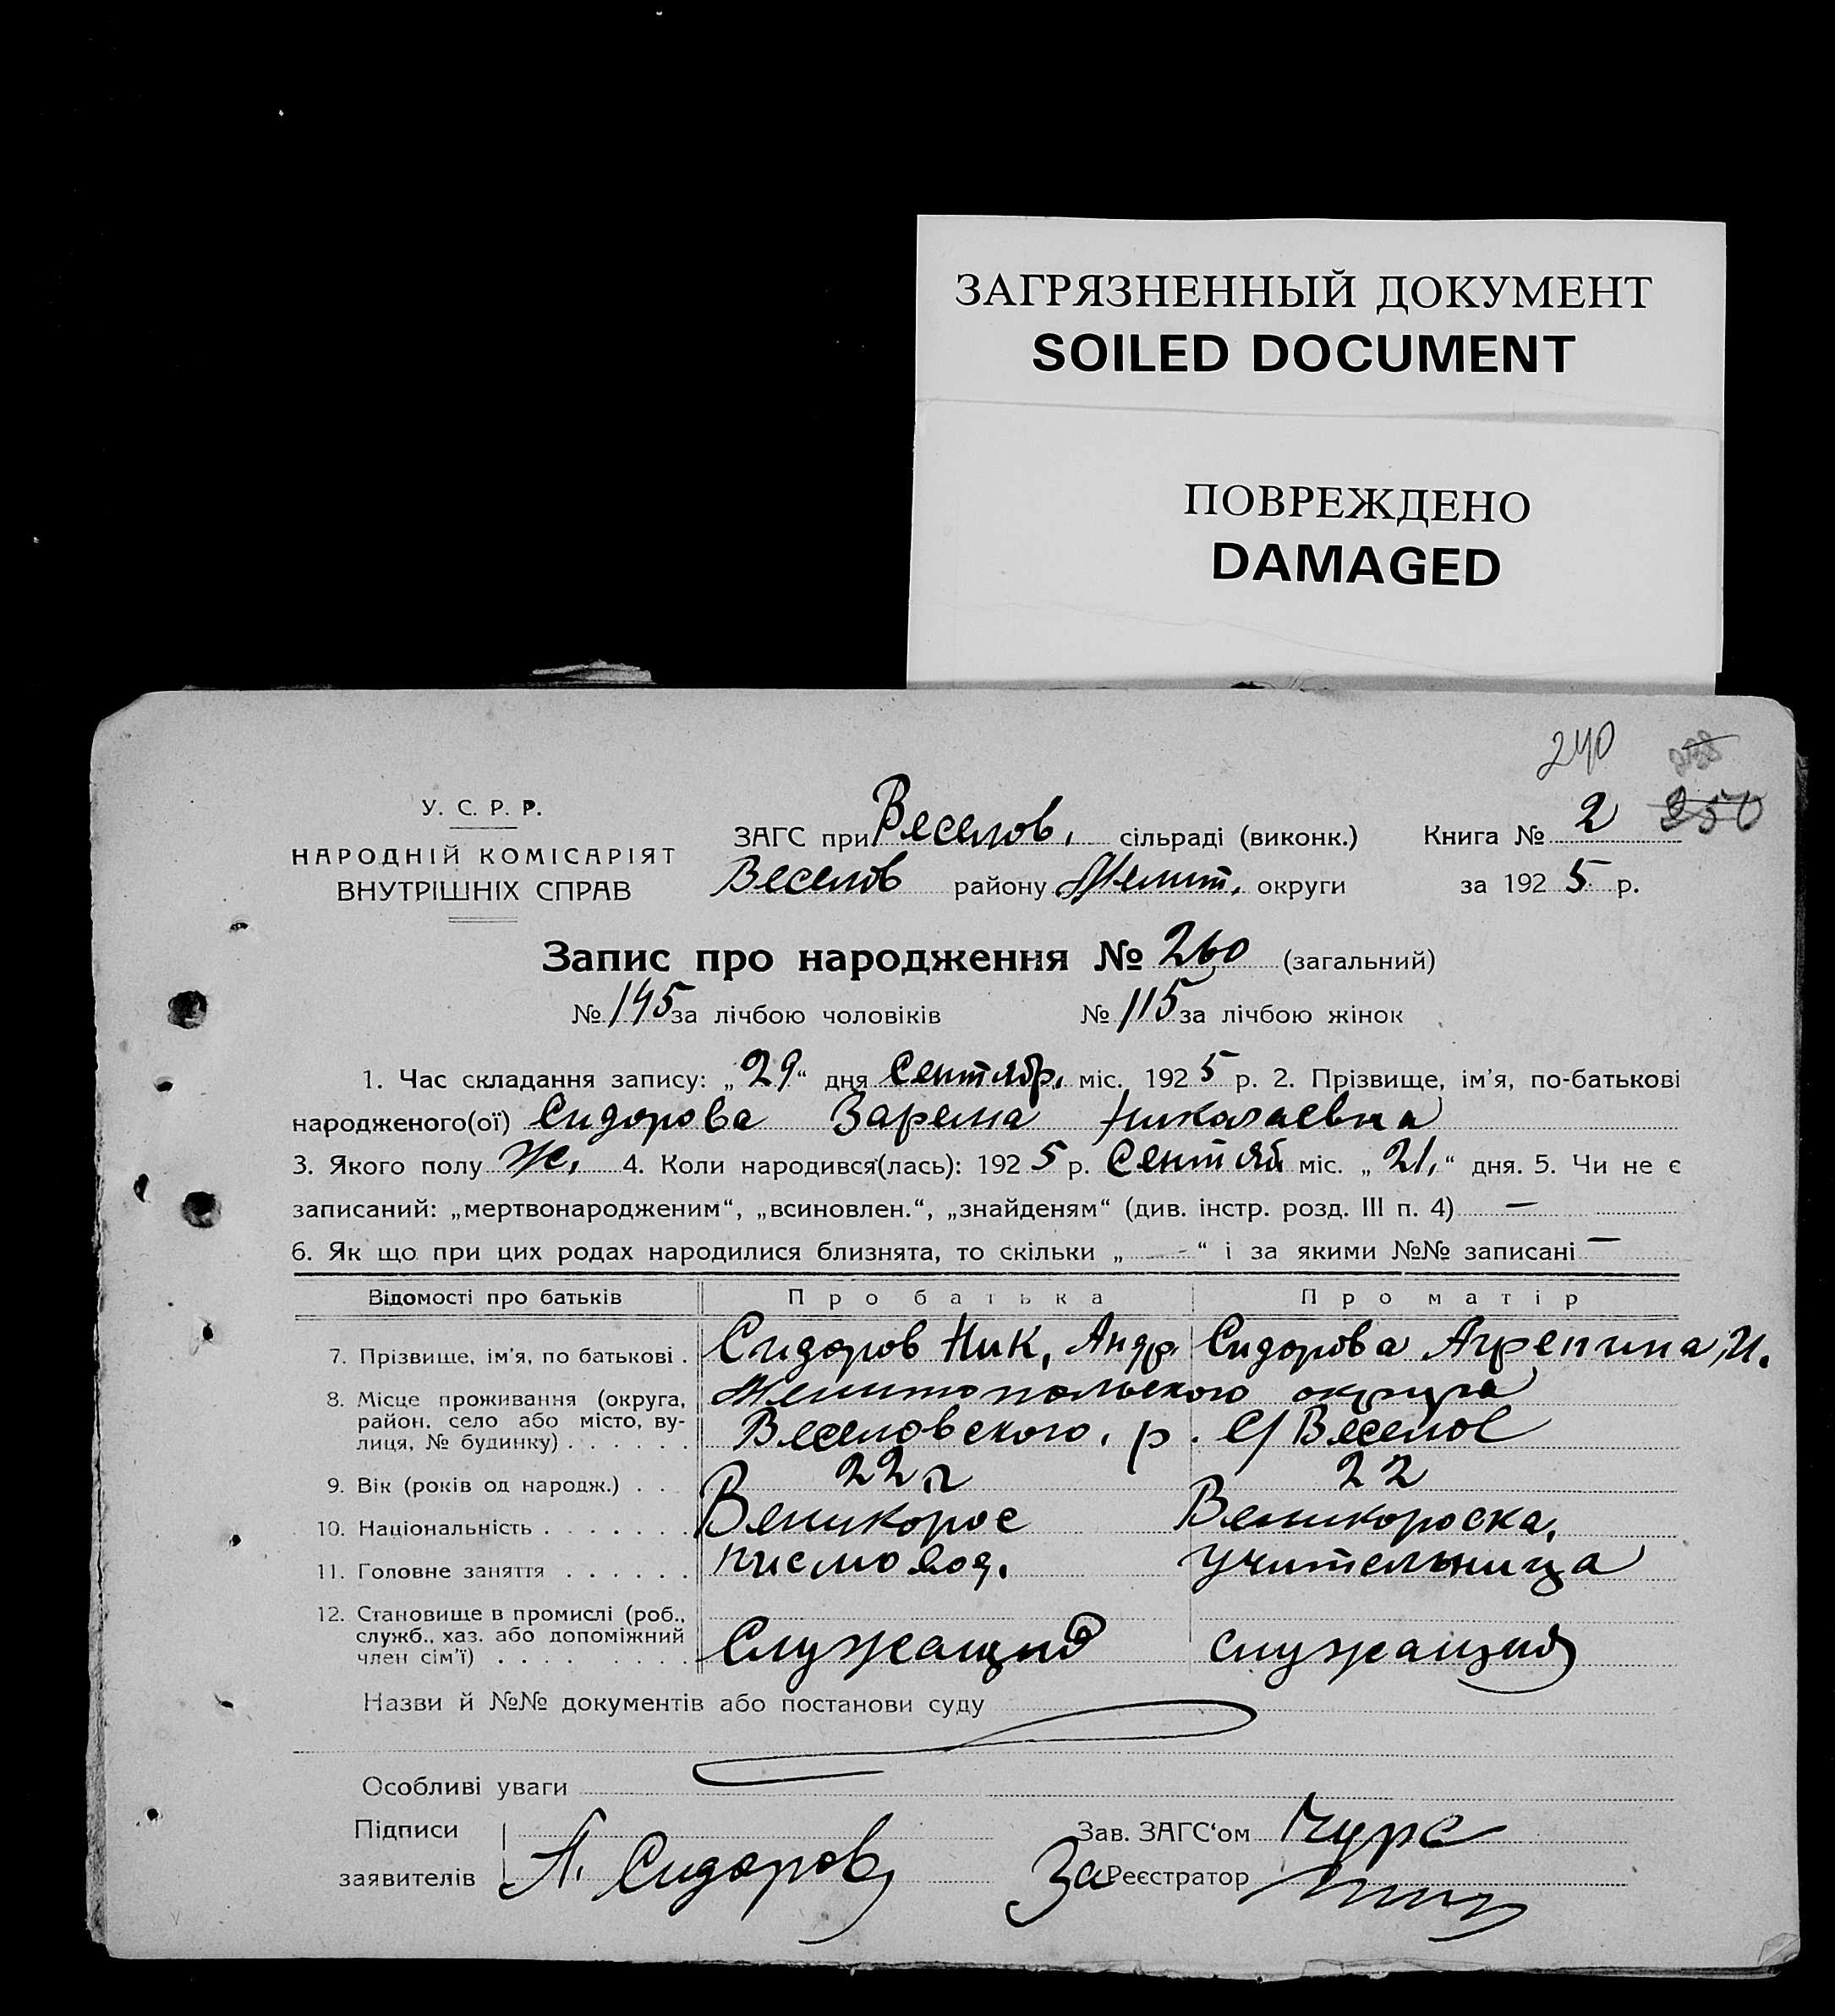 ЗАГРЯЗНЕННЫЙ ДОКУМЕНТ
SOILED DOCUMENT
ПОВРЕЖДЕНО
DAMAGED
240
250
У. С. Р. Р.
НАРОДНІЙ КОМІСАРІЯТ
ВНУТРІШНІХ СПРАВ
ЗАГС при Веселов. сільраді (виконк.) Книга № 2
Веселов району Мелит. округи за 1925 р.
Запис про народження № 260 (загальний)
№ 145 за лічбою чоловіків № 115 за лічбою жінок
1. Час складання запису: „29“ дня Сентябр. міс. 1925 р. 2. Прізвище, ім’я, по-батькові
народженого(ої) Сидорова Зарема Николаевна
3. Якого полу Ж. 4. Коли народився(лась): 1925 р. Сентяб. міс. „21.“ дня. 5. Чи не є
записаний: „мертвонародженим“, „всиновлен.“, „знайденям“ (див. інстр. розд. III п. 4) —
6. Як що при цих родах народилися близнята, то скільки „ - “ і за якими №№ записані —
Відомості про батьків Про батька Про матір
7. Прізвище, ім’я, по батькові . Сидоров Ник. Андр. Сидорова Агрепина И.
8. Місце проживання (округа, Мелитопольского округа
район, село або місто, ву-
лиця, № будинку) . . . . . . Веселовского. р. С/Веселое
9. Вік (років од народж.) . . 22 г 22
10. Національність . . . . . . . Великорос Великороска.
11. Головне заняття . . . . . . писмовод. учительница
12. Становище в промислі (роб.,
служб., хаз. або допоміжний
член сім’ї) . . . . . . . . . Служащий служащия
Назви й №№ документів або постанови суду
Особливі уваги
Підписи Зав. ЗАГС‘ом
заявителів А. Сидоров За Реєстратор